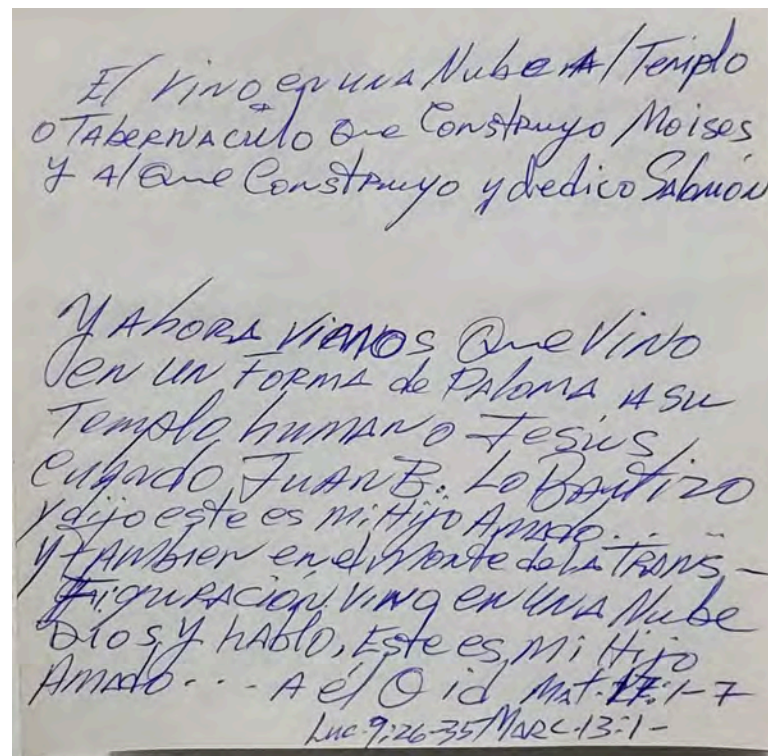 El vino en una Nube A/Templo
o TABERNACULO Que Construyo Moises
y Al Que Construyo y dedico Salomón
Y Ahora viemos Que Vino
en un Forma de Paloma a su
Templo humano Jesús,
Cuando Juan B. Lo Bautizo
y dijo este es mi Hijo Amado...
y tambien en el Monte de la Trans-
Figuración vino en una Nube
Dios y hablo, Este es, Mi Hijo
Amado... A él Oid Mat. 17:1-7
Luc. 9:26-35 Marc-13:1-